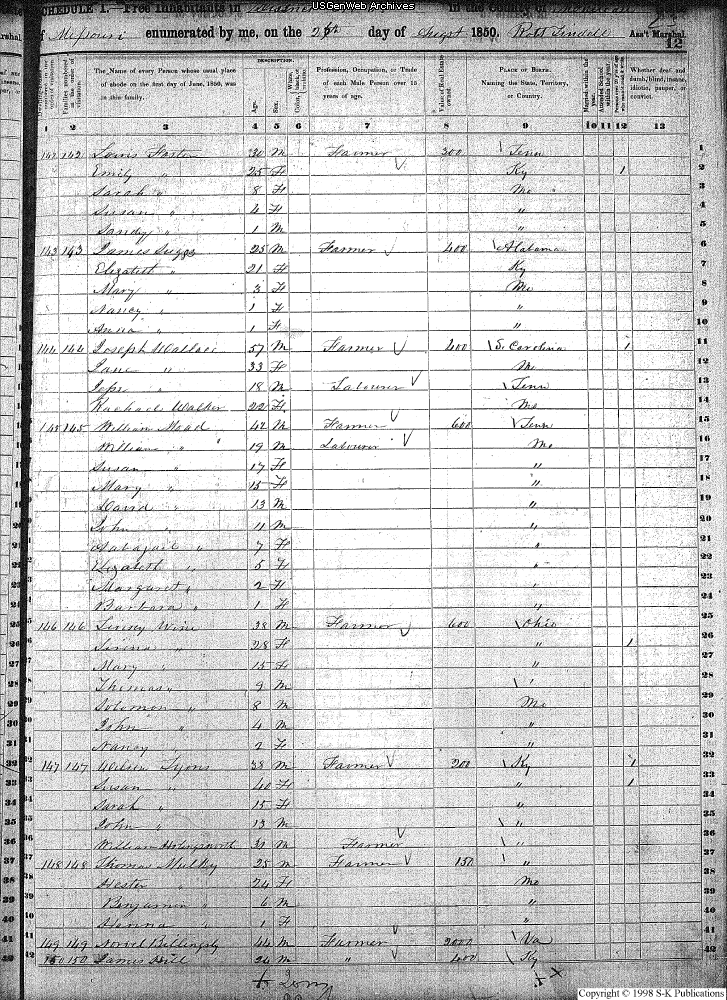 USGenWeb Archives
SCHEDULE I.—Free Inhabitants in in the County of
of Missouri enumerated by me, on the day of August 1850. Ass't Marshal.
12
DESCRIPTION.
The Name of every Person whose usual place of abode on the first day of June, 1850, was in this family.
Age. Sex. Profession, Occupation, or Trade of each Male Person over 15 years of age. Value of Real Estate owned. PLACE OF BIRTH. Naming the State, Territory, or Country. Whether deaf and dumb, blind, insane, idiotic, pauper, or convict.
1 2 3 4 5 6 7 8 9 10 11 12 13
142 142 Louis Foster 30 M Farmer 300 Tenn 1
Emily " 25 F Ky 1 2
Sarah " 8 F Mo 3
Susan " 4 F " 4
Sandy " 1 M " 5
143 143 James Suggs 25 M Farmer 400 Alabama 6
Elizabeth " 21 F Ky 7
Mary " 3 F Mo 8
Nancy " 1 F " 9
Anna " 1 F " 10
144 144 Joseph Wallace 57 M Farmer 400 S. Carolina 1 11
Jane " 33 F Mo 12
Jesse " 18 M Labourer Tenn 13
Rachael Walker 22 F Mo 14
145 145 William Mead 42 M Farmer 600 Tenn 15
William " 19 M Labourer Mo 16
Susan " 17 F " 17
Mary " 15 F " 18
David " 13 M " 19
John " 11 M " 20
" 7 F " 21
Elizabeth " 5 F " 22
Margaret " 2 F " 23
Barbara " 1 F " 24
146 146 Wine 38 M Farmer 600 Ohio 25
" 28 F " 1 26
Mary " 15 F " 27
Thomas " 9 M " 28
Solomon " 8 M Mo 29
John " 4 M " 30
Nancy " 2 F " 31
147 147 Wilson Lyons 38 M Farmer 200 Ky 1 32
Susan " 40 F " 1 33
Sarah " 15 F " 34
John " 13 M " 35
William 31 M Farmer " 36
148 148 Thomas Mulky 25 M Farmer 150 " 37
Hester " 24 F Mo 38
Benjamin " 6 M " 39
Hanna " 1 F " 40
149 149 Billingsly 44 M Farmer 2000 Va 41
150 150 James Hill 24 M " 400 Ky 42
Copyright © 1998 S-K Publications